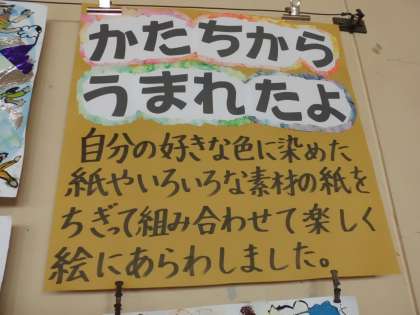 かたちから
うまれたよ
自分の好きな色に染めた
紙やいろいろな素材の紙を
ちぎって組み合わせて楽しく
絵にあらわしました。